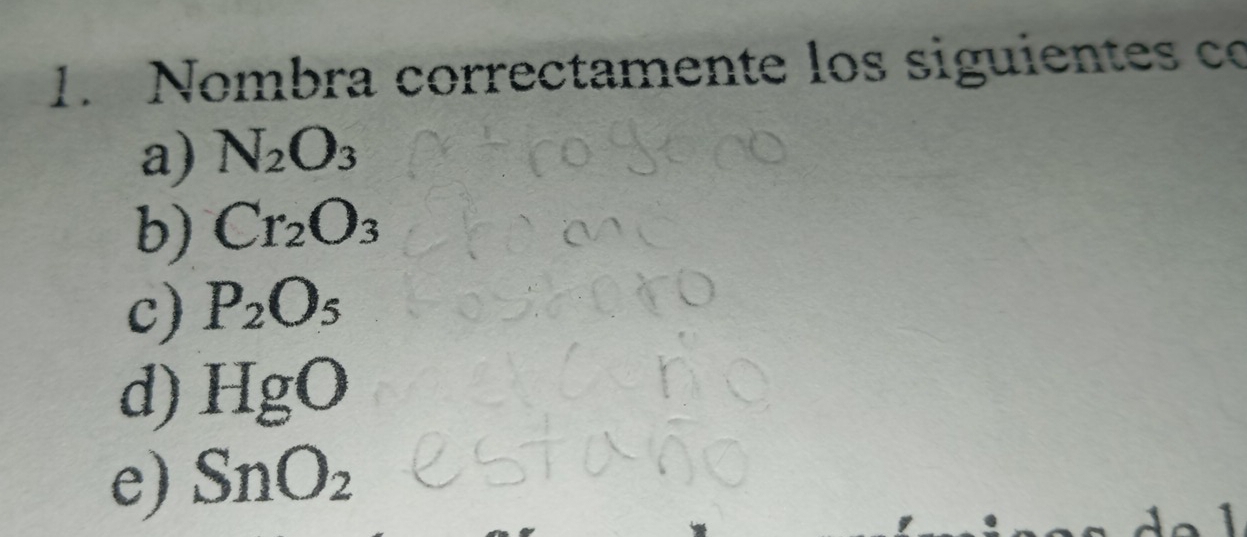 1. Nombra correctamente los siguientes co
a) N₂O₃ nitrogeno
b) Cr₂O₃ cromo
c) P₂O₅ fosforo
d) HgO
e) SnO₂ estaño